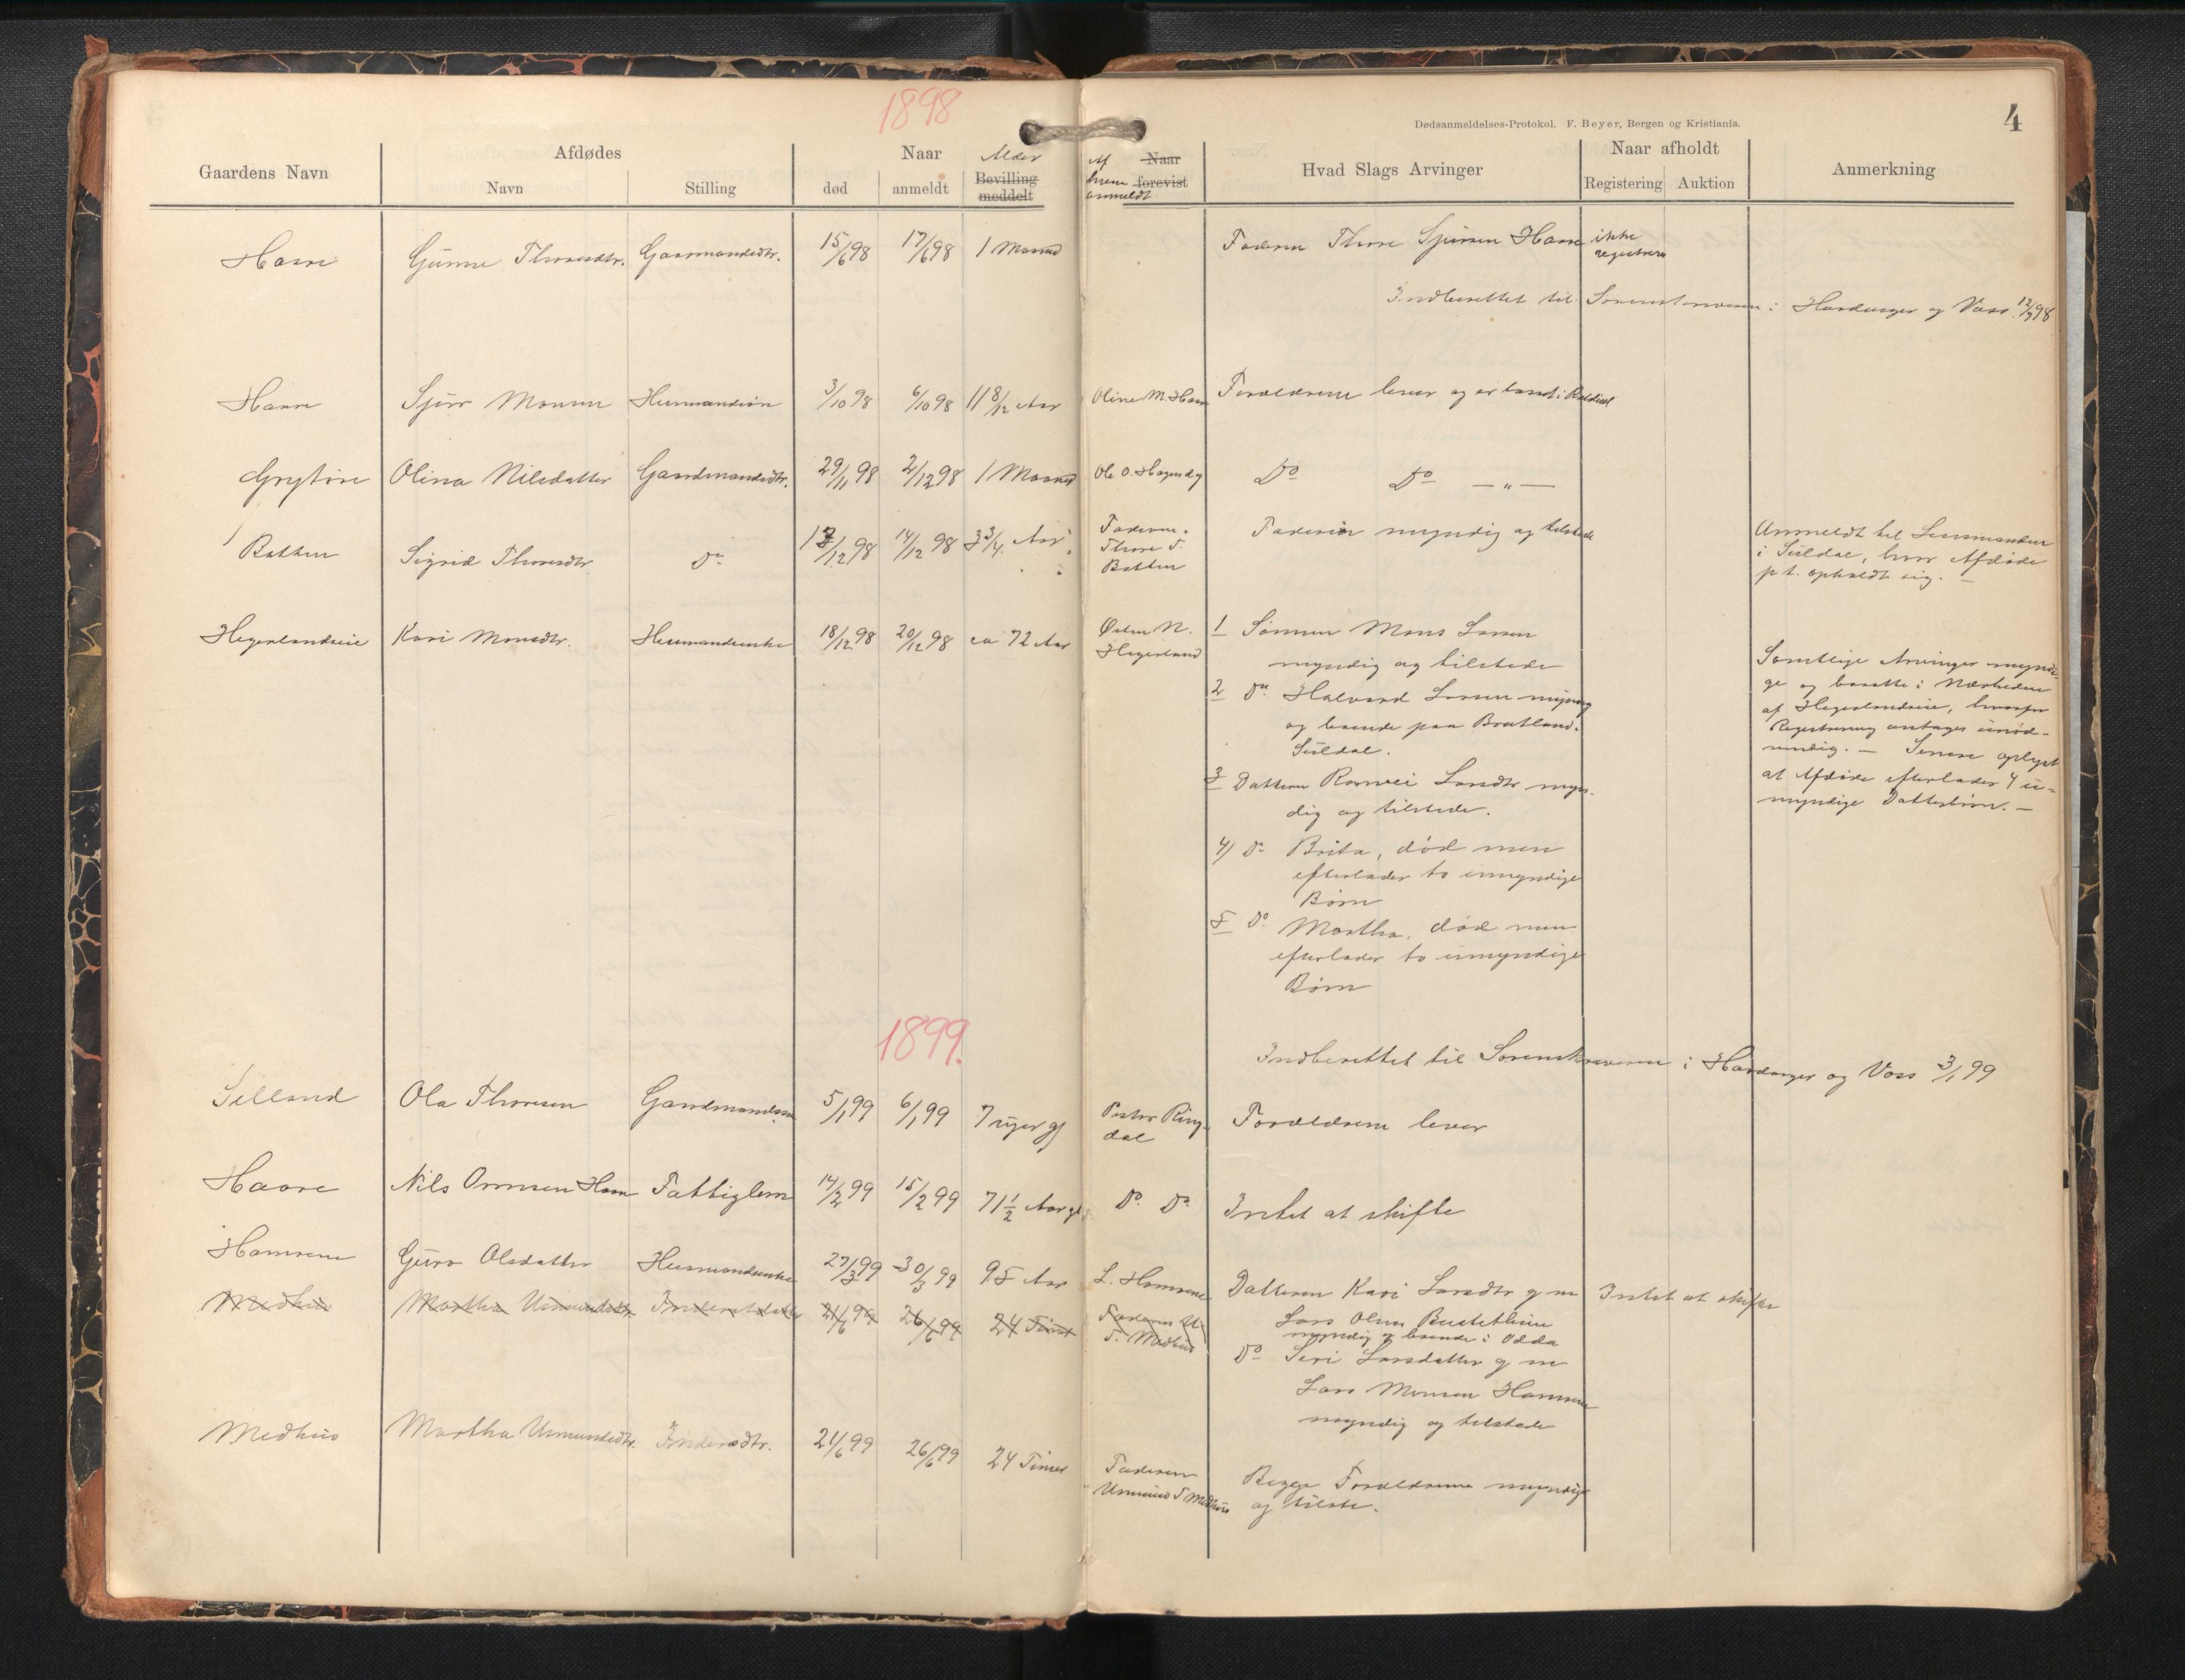 1898
Dødsanmeldelses-Protokol. F. Beyer, Bergen og Kristiania.
4
Gaardens Navn
Afdødes
Navn
Stilling
Naar
død
anmeldt
Alder
Bevilling
meddelt
Af
hvem
anmeldt
Naar
forevist
Hvad Slags Arvinger
Naar afholdt
Registering
Auktion
Anmerkning
Haare Thoresdtr. Gaarmandsdtr. 15/6 98 17/6 98 1 Maaned Faderen Thore Sjursen Haare ikke
registrere
Indberettet til Sorenskriveren i Hardanger og Voss 12/7 98
Haare Sjur Monsen Husmandssøn 3/10 98 6/10 98 11 8/12 Aar Oline M. Haare Forældrene lever og er bosat i Røldal
Grytøre Olina Nilsdatter Gaardmandsdtr. 29/11 98 2/12 98 1 Maaned Ole O. Do Do — " —
Batten Sigrid Thoresdtr. Do 13/12 98 14/12 98 3 3/4 Aar Faderen
Thore T.
Batten
Faderen myndig og tilstede
Anmeldt til Lensmanden
i Suldal, hvor Afdøde
p t. opholdt sig. —
Hegerlandseie Kari Monsdtr. Husmandsenke 18/12 98 20/12 98 ca 72 Aar Østen N.
Hegerland
1 Sønnen Mons Larsen
myndig og tilstede
2 Do Halvard Larsen myndig
og boende paa Bratland
Suldal.
3 Datteren Rannvei Larsdtr myn-
dig og tilstede.
4) Do Brita, død men
efterlader to umyndige
Børn
5 Do Martha, død men
efterlader to umyndige
Børn
Samtlige Arvinger myndi-
ge og bosatte i Nærheden
af Hegerlandseie, hvorfor
Registrering antages unød-
vendig. — Senere oplyst
at Afdøde efterlader 4 u-
myndige Datterbørn. —
1899.
Indberettet til Sorenskriveren i Hardanger og Voss 3/1 99
Seland Ola Thoresen Gaardmandssøn 5/1 99 6/1 99 7 uger gl Pastor Ring-
dal
Forældrene lever
Haare Nils Ormsen Haare Fattiglem 14/2 99 15/2 99 71 1/2 Aar gl. Do Do Intet at skifte
Hamrene Guro Olsdatter Husmandsenke 27/3 99 30/3 99 95 Aar L. Hamrene Datteren Kari Larsdtr g m Intet at skifte
Lars Olsen
myndig og boende i Odda
Do Siri Larsdatter g m
Lars Monsen Hamrene
myndig og tilstede
Medhus Martha Usmundsdtr. Inderstdatter 21/6 99 26/6 99 24 Timer Faderen U.
T. Medhus
Medhus Martha Usmundsdtr. Indersdtr. 21/6 99 26/6 99 24 Timer Faderen
Usmund T Medhus
Begge Forældrene myndige
og tilste.